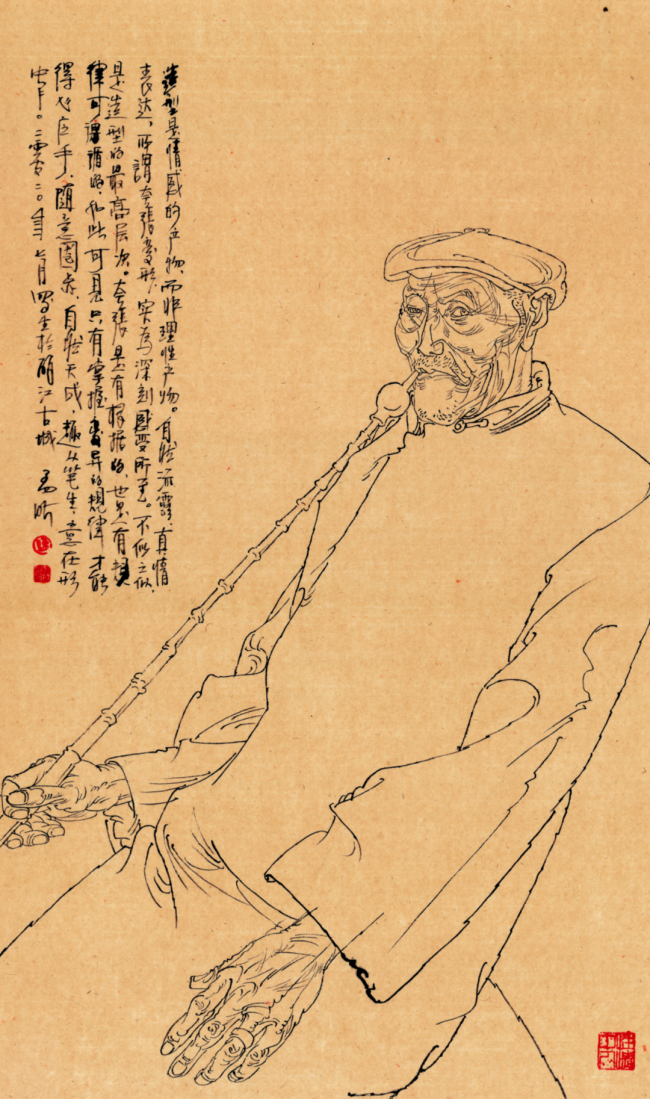 造型是情感的产物，而非理性产物。自然流露，真情
表达，所谓夸张变形，实为深刻感受所至。不似之似，
是造型的最高层次。夸张是有根据的，也是有规
律可谓循的，如此可见只有掌握变异的规律才能
得心应手，随意图示，自然天成，趣从笔生，意在形
中。二零二〇年七月写生于丽江古城